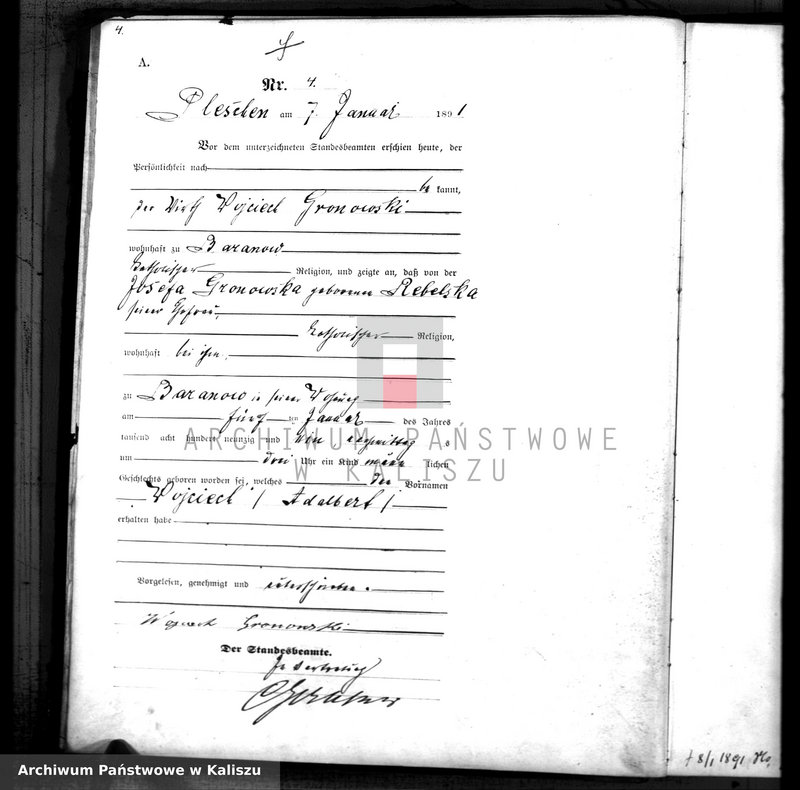 4.
A.
Nr. 4.
Pleschen am 7. Januar 1891
Vor dem unterzeichneten Standesbeamten erschien heute, der
Persönlichkeit nach
be kannt,
der Wirth Wojciech Gronowski
wohnhaft zu Baranow
katholischer Religion, und zeigte an, daß von der
Josefa Gronowska geborenen Rebelska
seiner Ehefrau,
katholischer Religion,
wohnhaft bei ihm,
zu Baranow in seiner Wohnung
am fünf ten Januar des Jahres
tausend acht hundert neunzig und ein Nachmittags
um drei Uhr ein Kind männ lichen
Geschlechts geboren worden sei, welches den Vornamen
Wojciech / Adalbert /
erhalten habe
Vorgelesen, genehmigt und unterschrieben.
Wojciech Gronowski
Der Standesbeamte.
In Vertretung
† 8/1 1891
ARCHIWUM PAŃSTWOWE
W KALISZU
Archiwum Państwowe w Kaliszu